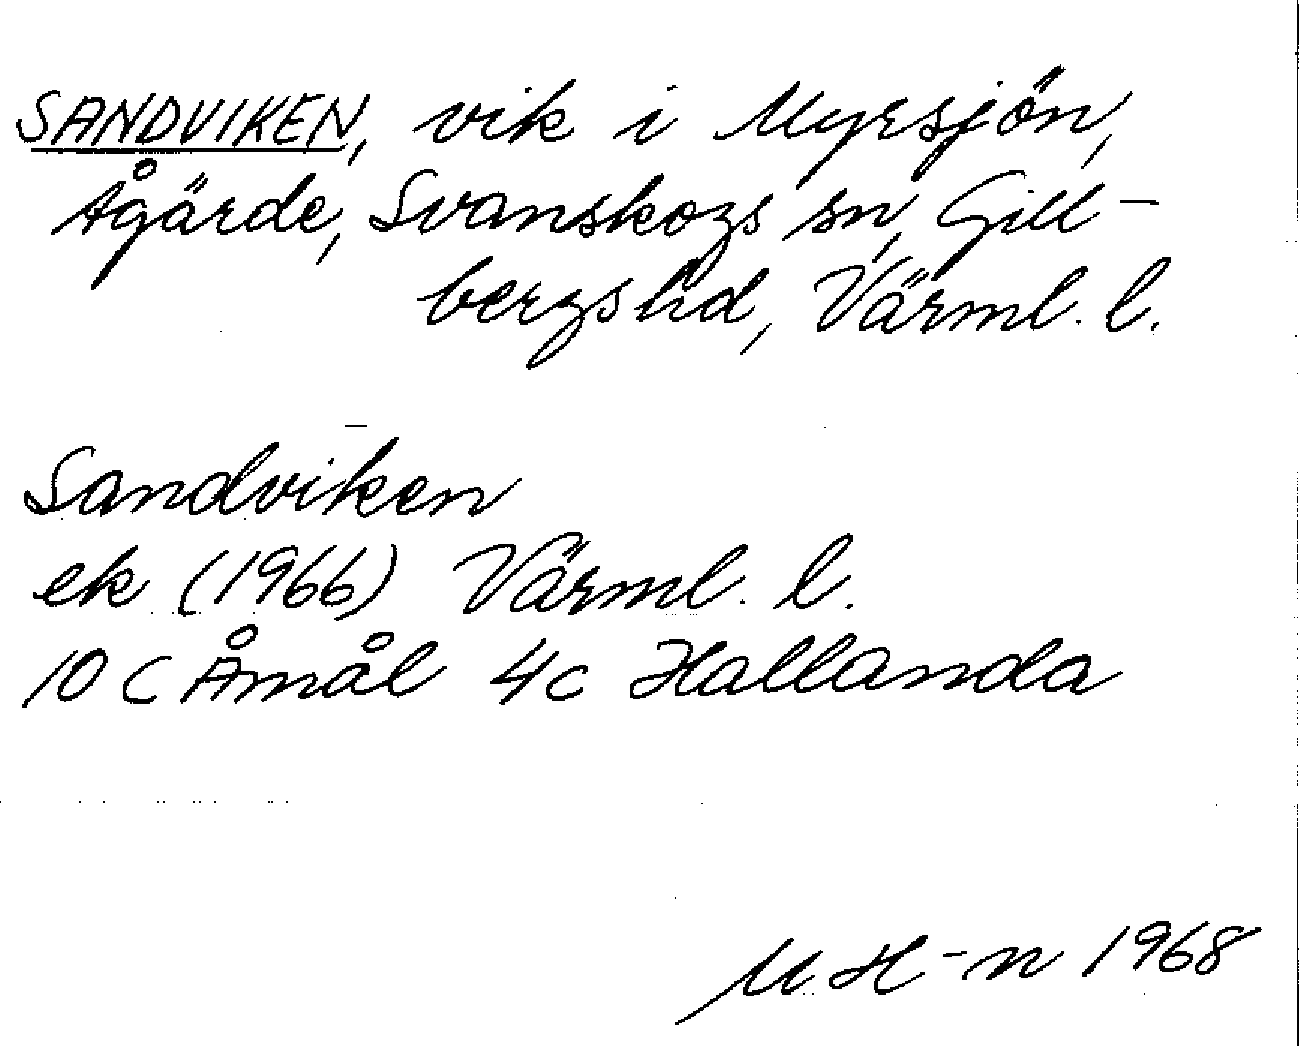 SANDVIKEN, vik i Myrsjön,
Ågärde, Svanskogs sn, Gill-
bergshd, Värml. l.
Sandviken
ek (1966) Värml. l.
10 C Åmål 4c Hallanda
M. H-n 1968